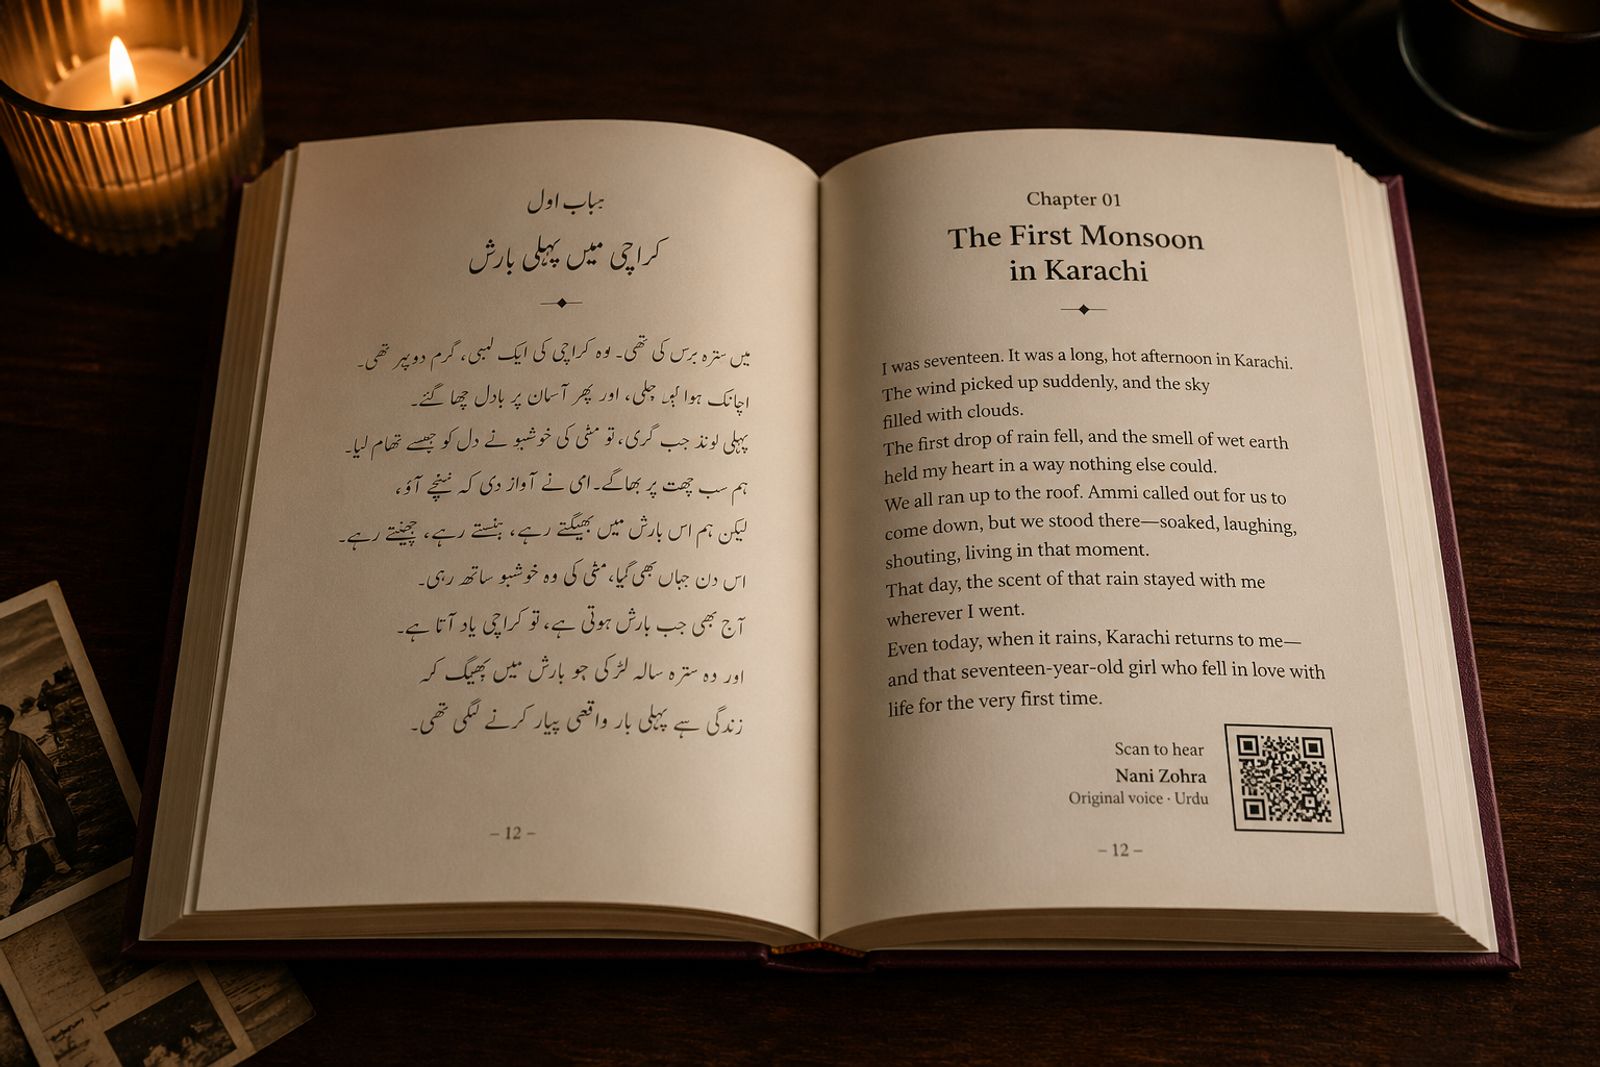 باب اول
کراچی میں پہلی بارش
میں سترہ برس کی تھی۔ وہ کراچی کی ایک لمبی، گرم دوپہر تھی۔
اچانک ہوا چلی، اور پھر آسمان پر بادل چھا گئے۔
پہلی جب گری، تو مٹی کی خوشبو نے دل کو جیسے تھام لیا۔
ہم سب چھت پر بھاگے۔ امی نے آواز دی کہ نیچے آؤ،
لیکن ہم اس بارش میں بھیگتے رہے، ہنستے رہے، رہے۔
اس دن جہاں بھی گیا، مٹی کی وہ خوشبو ساتھ رہی۔
آج بھی جب بارش ہوتی ہے، تو کراچی یاد آتا ہے۔
اور وہ سترہ سالہ لڑکی جو بارش میں بھیگ کر
زندگی سے پہلی بار واقعی پیار کرنے لگی تھی۔
– 12 –
Chapter 01
The First Monsoon
in Karachi
I was seventeen. It was a long, hot afternoon in Karachi.
The wind picked up suddenly, and the sky
filled with clouds.
The first drop of rain fell, and the smell of wet earth
held my heart in a way nothing else could.
We all ran up to the roof. Ammi called out for us to
come down, but we stood there—soaked, laughing,
shouting, living in that moment.
That day, the scent of that rain stayed with me
wherever I went.
Even today, when it rains, Karachi returns to me—
and that seventeen-year-old girl who fell in love with
life for the very first time.
Scan to hear
Nani Zohra
Original voice · Urdu
– 12 –